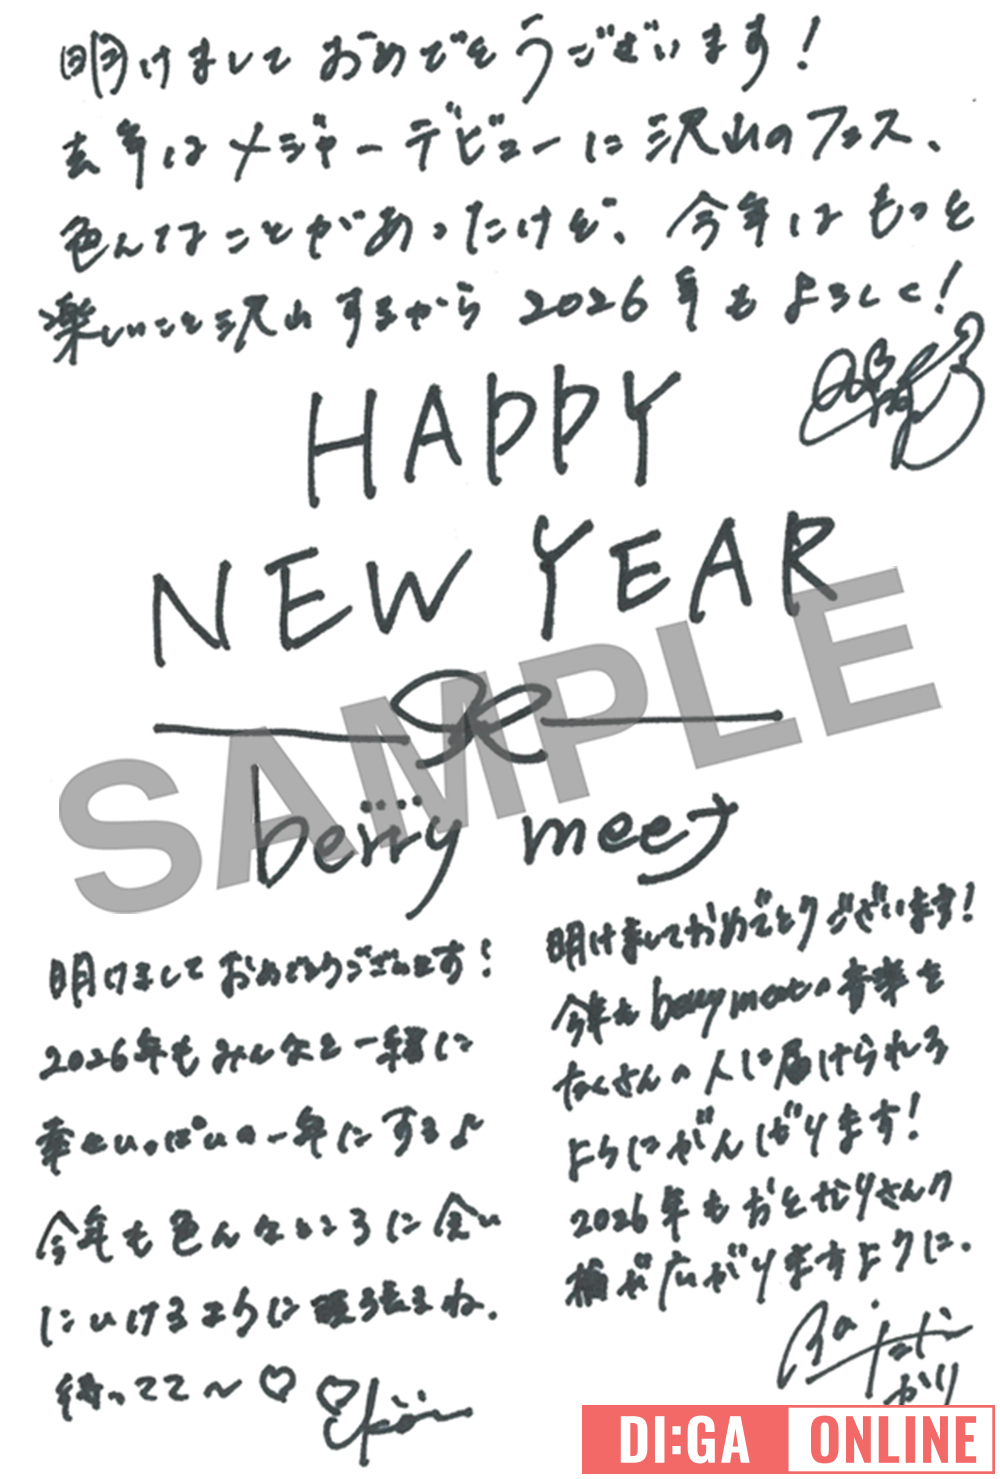 明けましておめでとうございます!
去年はメジャーデビューに沢山のフェス、
色んなことがあったけど、今年はもっと
楽しいこと沢山するから2026年もよろしく!
HAPPY
NEW YEAR
SAMPLE
berry meet
明けましておめでとうございます!
2026年もみんなと一緒に
幸せいっぱいの一年にするよ
今年も色んなところに会い
にいけるように頑張るね。
待ってて〜♡
明けましておめでとうございます!
今年もberry meetの音楽を
たくさんの人に届けられる
ようにがんばります!
2026年もおとなりさんの
輪が広がりますように。
DI:GA ONLINE